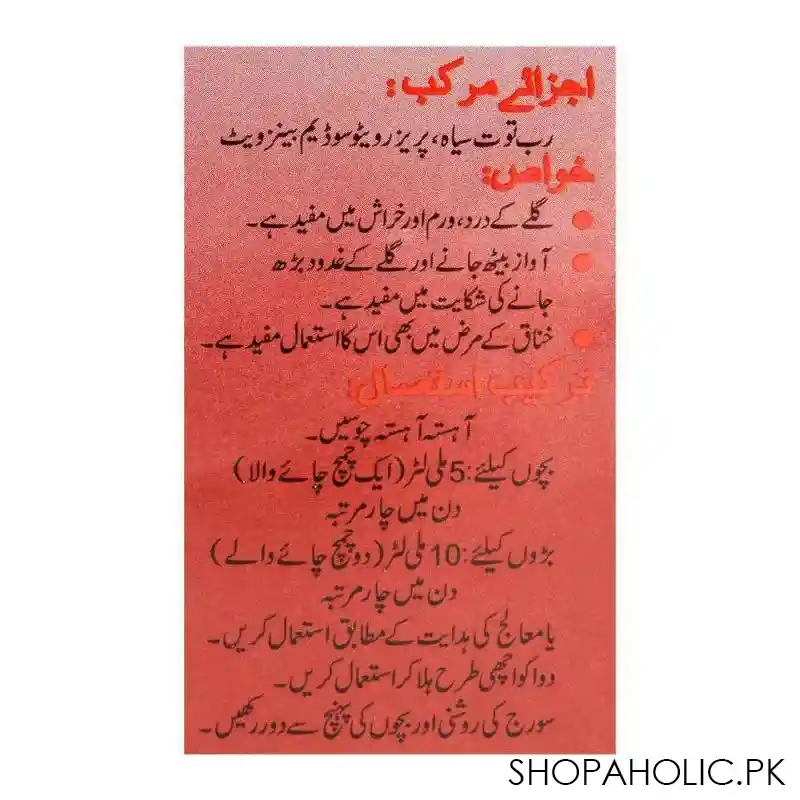 اجزائے مرکب:
رب توت سیاہ، پریزرویٹو سوڈیم بینزویٹ
خواص:
● گلے کے درد، ورم اور خراش میں مفید ہے۔
● آواز بیٹھ جانے اور گلے کے غدود بڑھ
جانے کی شکایت میں مفید ہے۔
● خناق کے مرض میں بھی اس کا استعمال مفید ہے۔
ترکیب استعمال:
آہستہ آہستہ چوسیں۔
بچوں کیلئے: 5 ملی لٹر (ایک چمچ چائے والا)
دن میں چار مرتبہ
بڑوں کیلئے: 10 ملی لٹر (دو چمچ چائے والے)
دن میں چار مرتبہ
یا معالج کی ہدایت کے مطابق استعمال کریں۔
دوا کو اچھی طرح ہلا کر استعمال کریں۔
سورج کی روشنی اور بچوں کی پہنچ سے دور رکھیں۔
SHOPAHOLIC.PK